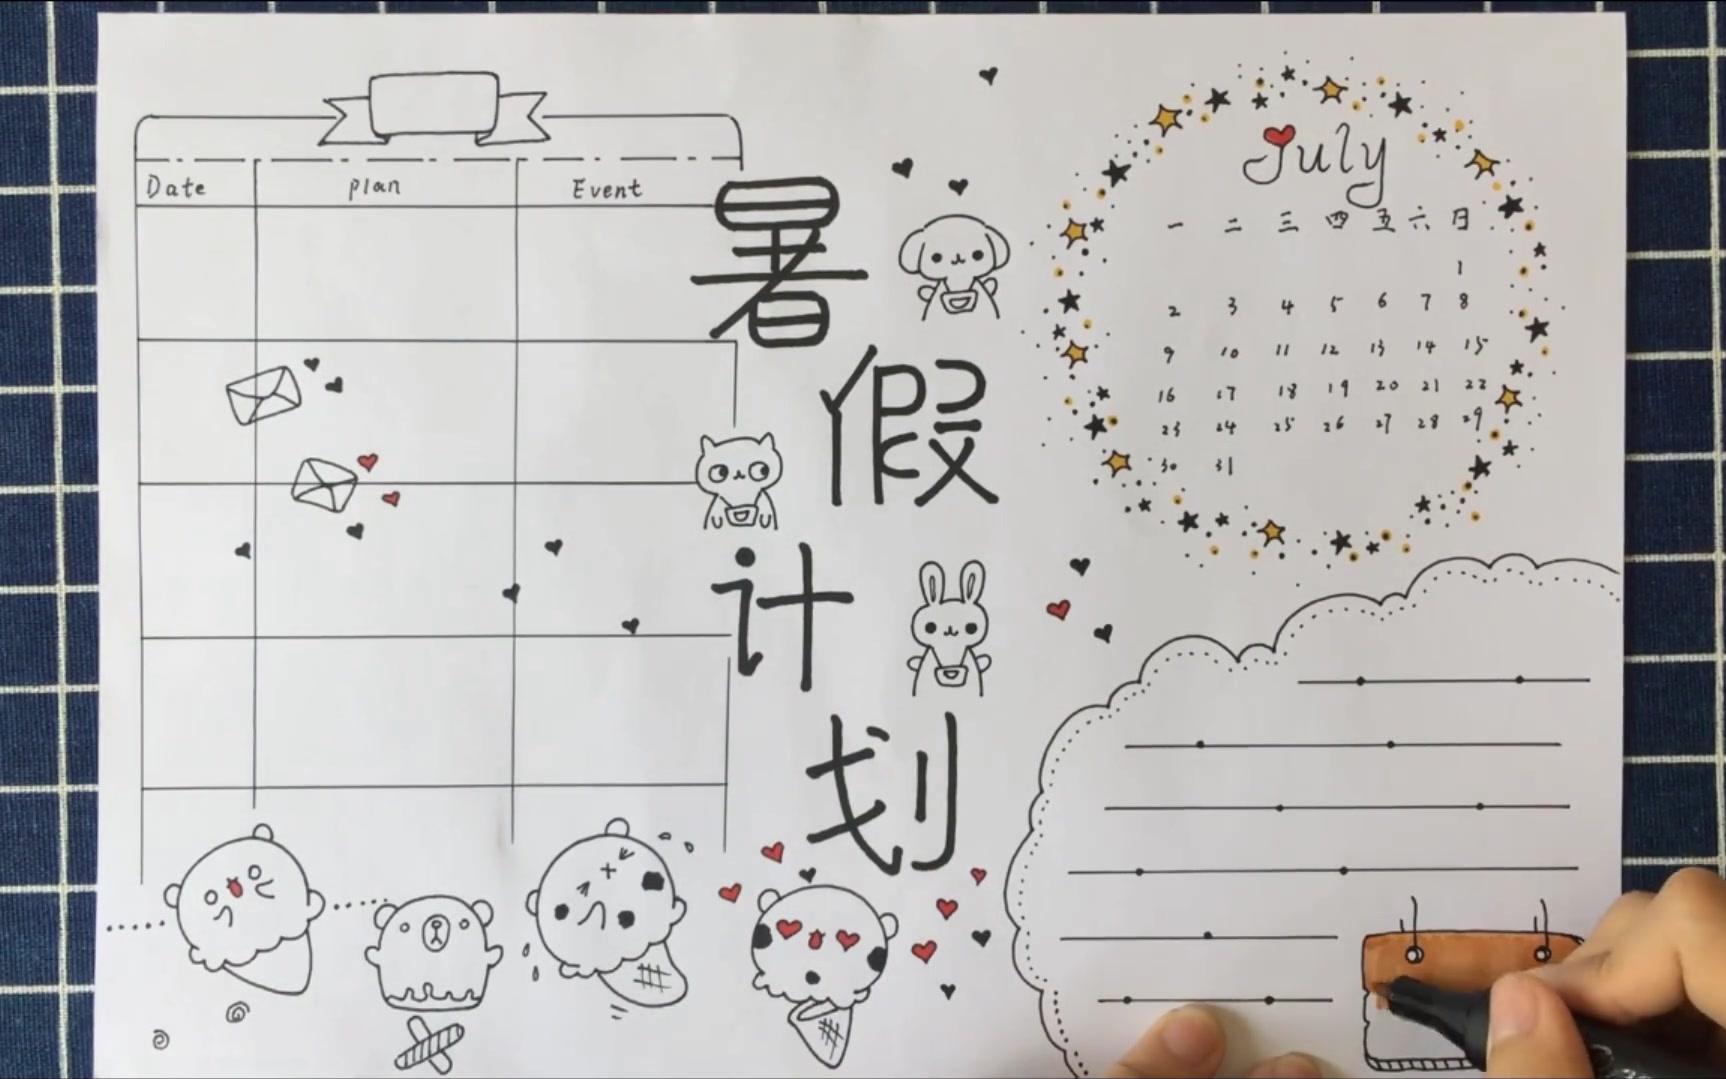 Date plan Event
暑
假
计
划
July
一 二 三 四 五 六 日
1
2 3 4 5 6 7 8
9 10 11 12 13 14 15
16 17 18 19 20 21 22
23 24 25 26 27 28 29
30 31